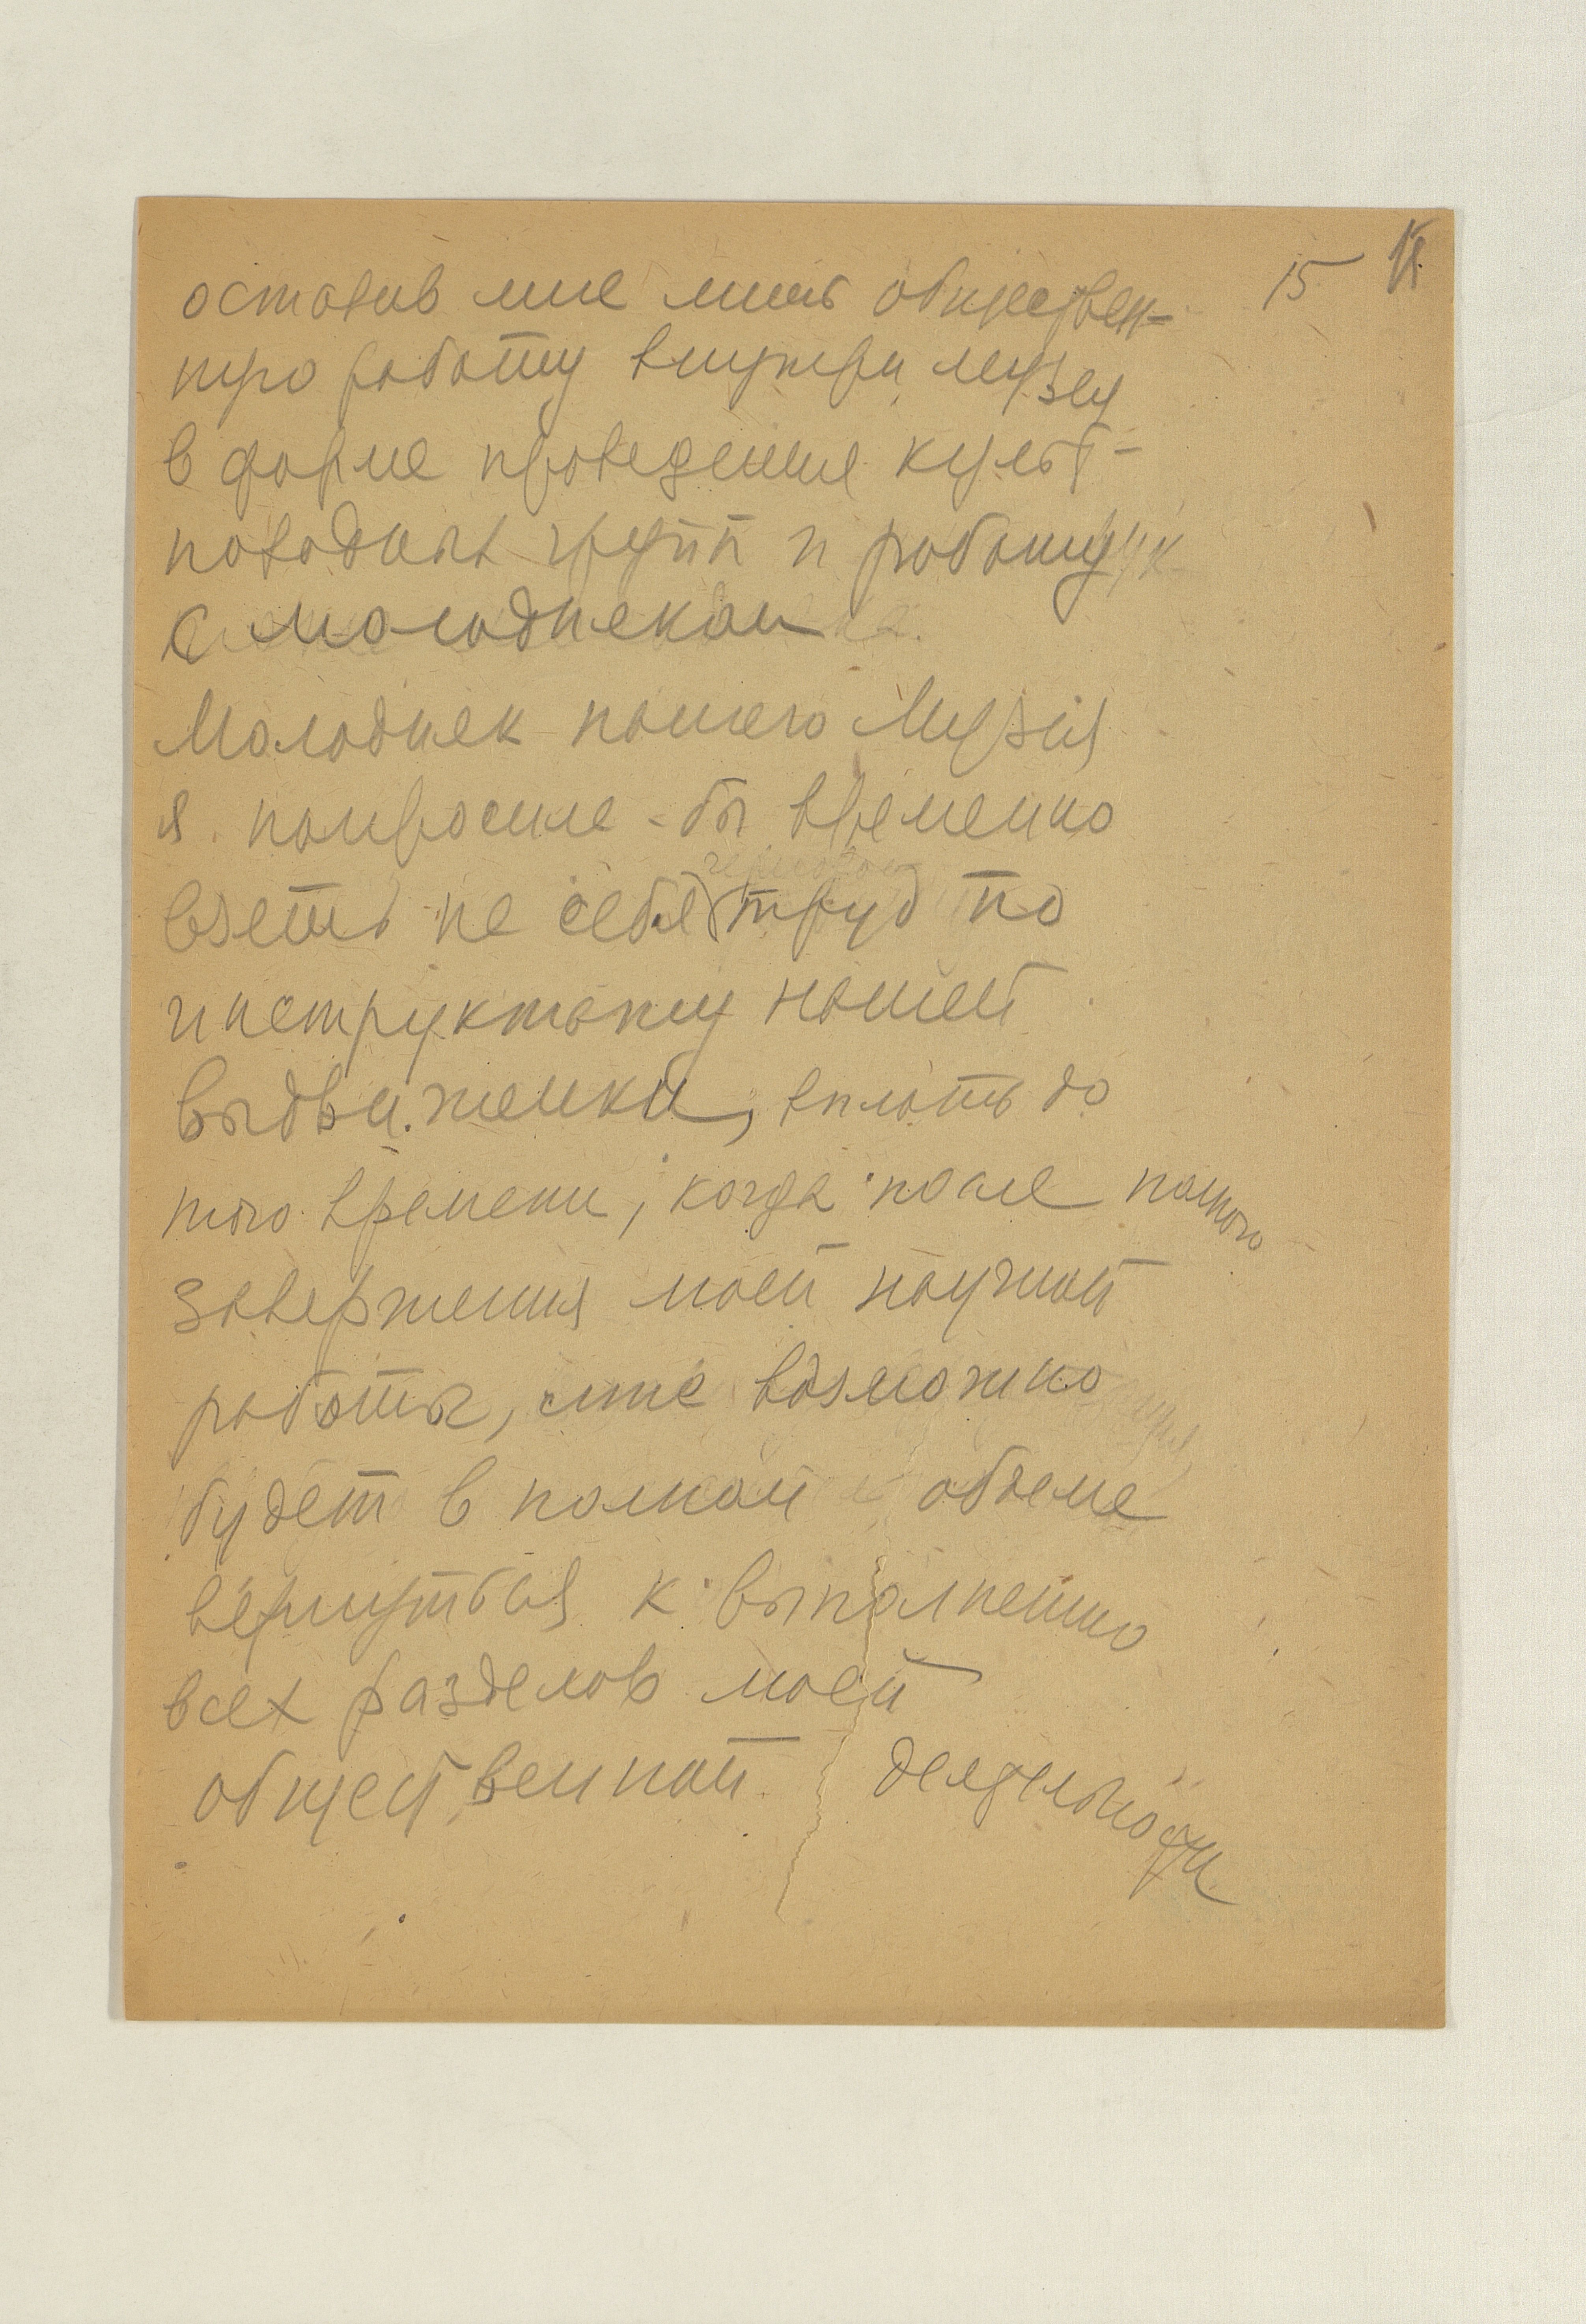 15
оставив мне лишь обществен-
ную работу внутри музея
в форме проведения культ-
походных групп и работу
с молодняком
Молодняк нашего Музея
я попросила-бы временно
взять на себя труд по
инструктажу нашей
выдвиженки, вплоть до
того времени, когда после полного
завершения моей научной
работы, мне возможно
будет в полном объеме
вернуться к выполнению
всех разделов моей
общественной деятельности